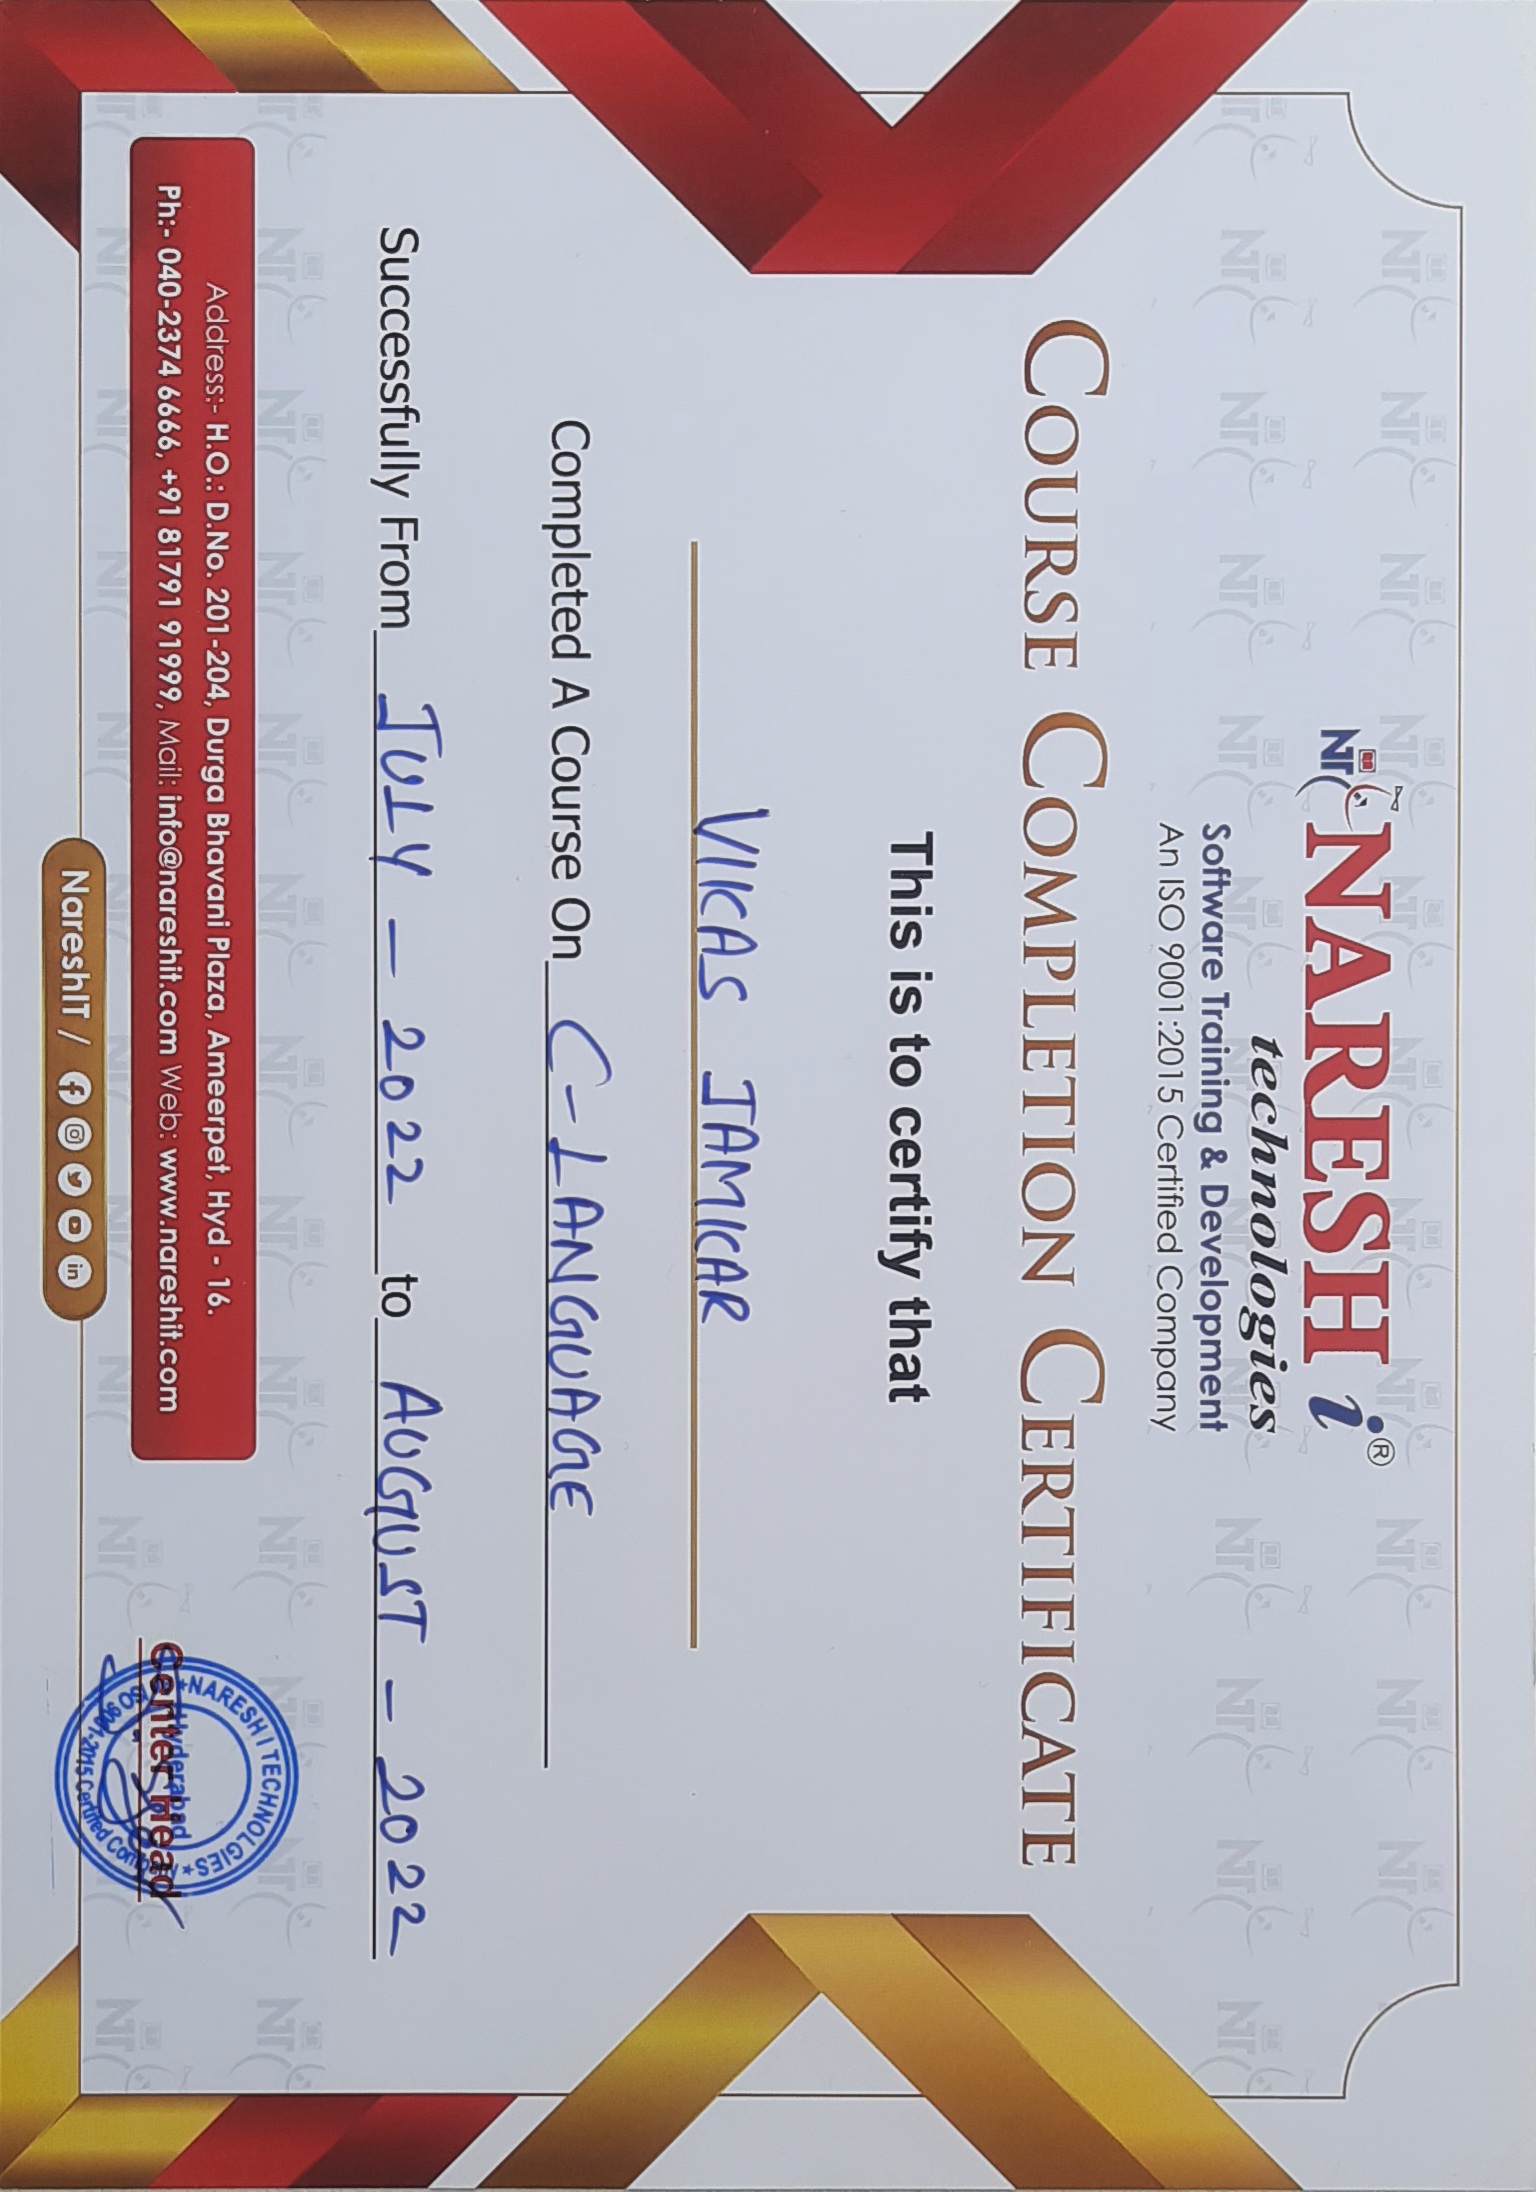 NARESH i ®
technologies
Software Training & Development
An ISO 9001:2015 Certified Company
COURSE COMPLETION CERTIFICATE
This is to certify that
VIKAS JAMKAR
Completed A Course On C-LANGUAGE
Successfully From JULY - 2022 to AUGUST - 2022
Address:- H.O.: D.No. 201-204, Durga Bhavani Plaza, Ameerpet, Hyd - 16.
Ph:- 040-2374 6666, +91 81791 91999, Mail: info@nareshit.com Web: www.nareshit.com
NARESH I TECHNOLGIES
Hyderabad
Center Head
ISO 9001-2015 Certified Company
NareshIT /